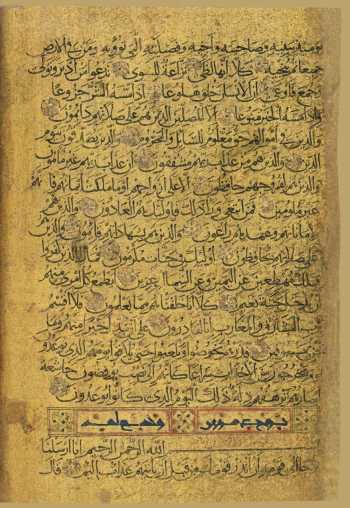 يومئذ ببنيه وصاحبته واخيه وفصيلته التي تؤويه ومن في الارض
جميعا ثم ينجيه كلا انها لظى نزاعة للشوى تدعوا من ادبر وتولى
وجمع فاوعى ان الانسان خلق هلوعا اذا مسه الشر جزوعا
واذا مسه الخير منوعا الا المصلين الذين هم على صلاتهم دائمون
والذين في اموالهم حق معلوم للسائل والمحروم والذين يصدقون بيوم
الدين والذين هم من عذاب ربهم مشفقون ان عذاب ربهم غير مامون
والذين هم لفروجهم حافظون الا على ازواجهم او ما ملكت ايمانهم فانهم
غير ملومين فمن ابتغى وراء ذلك فاولئك هم العادون والذين هم
لاماناتهم وعهدهم راعون والذين هم بشهاداتهم قائمون والذين هم
على صلاتهم يحافظون اولئك في جنات مكرمون فمال الذين كفروا
قبلك مهطعين عن اليمين وعن الشمال عزين ايطمع كل امرئ منهم
ان يدخل جنة نعيم كلا انا خلقناهم مما يعلمون فلا اقسم
برب المشارق والمغارب انا لقادرون على ان نبدل خيرا منهم وما
نحن بمسبوقين فذرهم يخوضوا ويلعبوا حتى يلاقوا يومهم الذي يوعدون
يوم يخرجون من الاجداث سراعا كانهم الى نصب يوفضون خاشعة
ابصارهم ترهقهم ذلة ذلك اليوم الذي كانوا يوعدون
بسم الله الرحمن الرحيم انا ارسلنا
نوحا الى قومه ان انذر قومك من قبل ان ياتيهم عذاب اليم قال